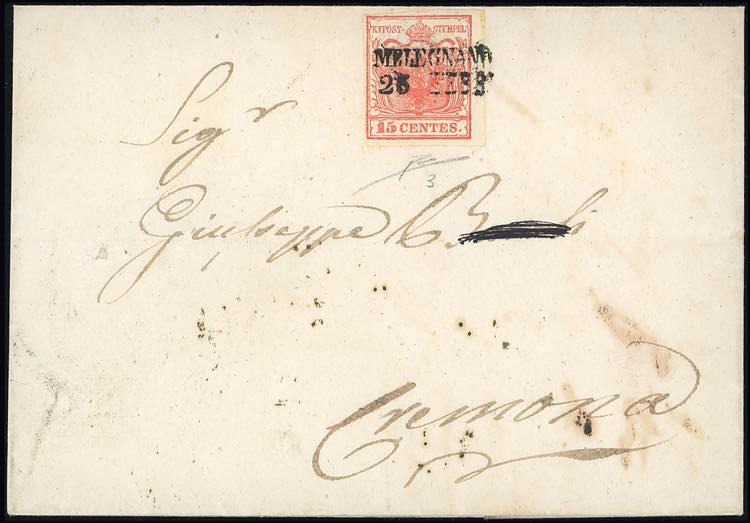 K.K.POST-STEMPEL
MELEGNANO
25 FEBB
15 CENTES.
3
Sig.r
Giuseppe
Cremona